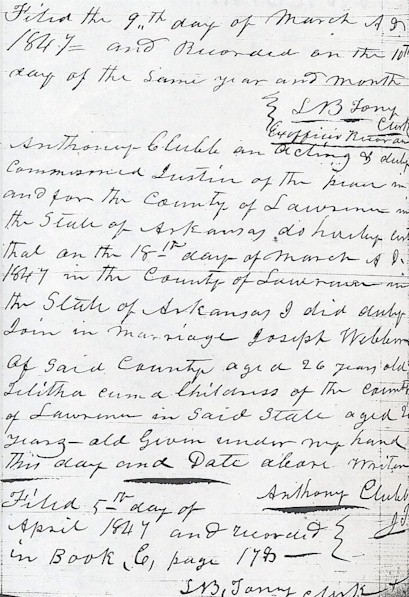 Filed the 9th day of March A D
1847 = and Recorded on the 10th
day of the same year and month
L B Tony
Clerk
Exofficio Recorder
Anthony Clubb an acting & duly
Commissioned Justice of the peace in
and for the County of Lawrence in
the State of Arkansas do hereby cert
that on the 18th day of March A D.
1847 in the County of Lawrence in
the State of Arkansas I did duly
Join in marriage Joseph
Of Said County aged 26 years old
Telitha cuma Childress of the County
of Lawrence in Said State aged 2
years - old Given under my hand
this day and Date above written
Anthony Clubb
J P
Filed 5th day of
April 1847 and recorded
in Book C, page 178
L B, Tony Clerk